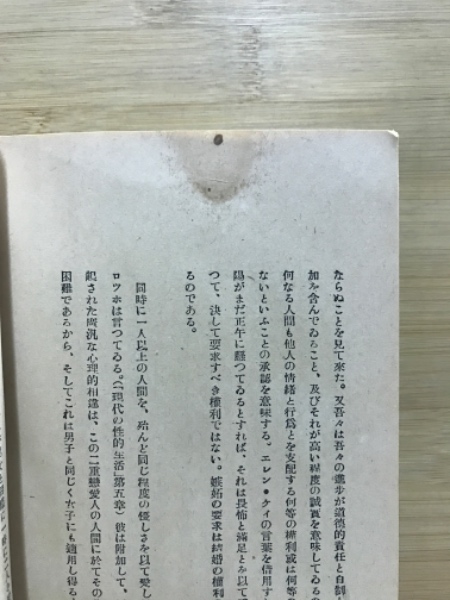 ならぬことを見て來た。又吾々は吾々の進歩が道德的責任と自制
加を含んでゐること、及びそれが高い程度の誠實を意味してゐる
何なる人間も他人の情緖と行爲とを支配する何等の權利或は何等
ないといふことの承認を意味する。エレン・ケイの言葉を借用す
陽がまだ正午に懸つてゐるとすれば、それは畏怖と滿足とを以て
つて、決して要求すべき權利ではない。嫉妬の要求は結婚の權利
るのである。
同時に一人以上の人間を、殆んど同じ程度の優しさを以て愛し
ロツホは言つてゐる。(「現代の性的生活」第五章)彼は附加して、
範された廣汎な心理的相違は、この二重戀愛人の人間に於てその
困難であるから、そしてこれは男子と同じく女子にも適用し得る